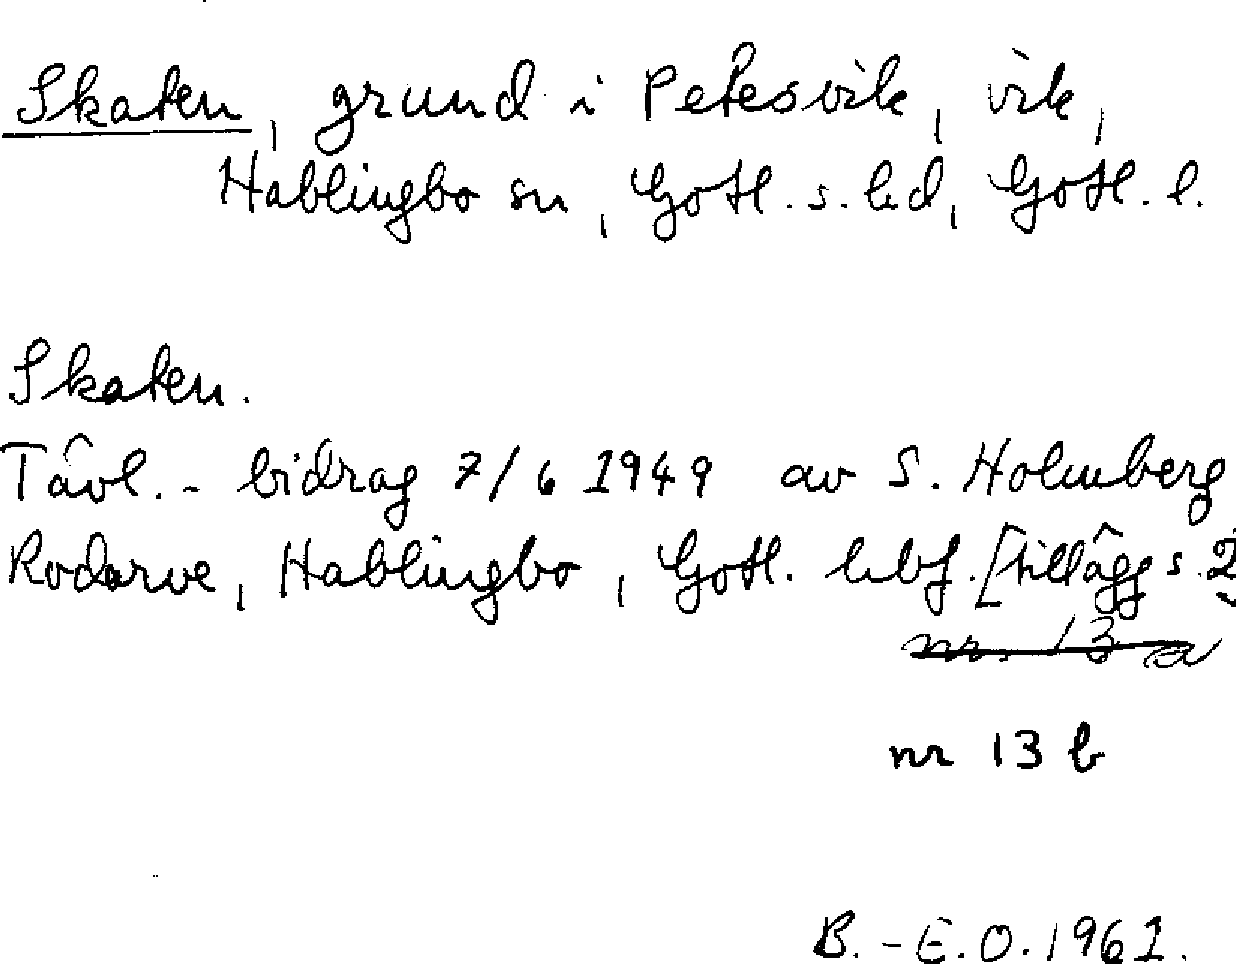 Skaten, grund i Petesvik, vik,
Hablingbo sn, Gotl. s. hd, Gotl. l.
Skaten.
Tävl.-bidrag 7/6 1949 av S. Holmberg
Rodarve, Hablingbo, Gotl. hbf. [tillägg s. 2
nr. 13 a
nr 13 b
B.-E.O. 1961.